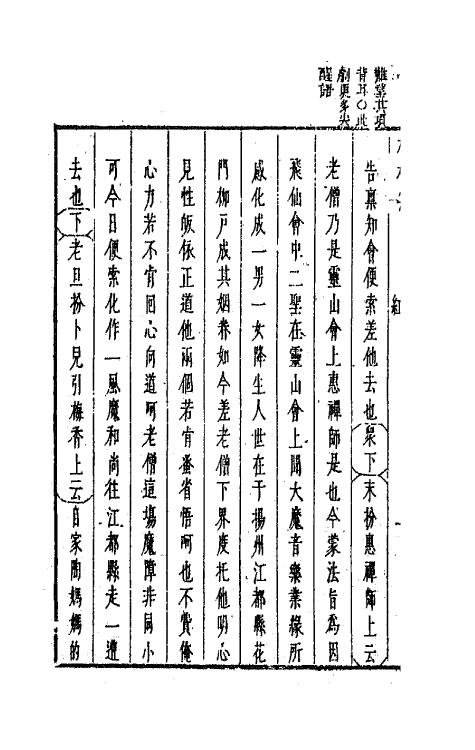 難望其項
背耳〇此
劇更多尖
醒語
紅
告稟知會便索差他去也衆下末扮惠禪師上云
老僧乃是靈山會上惠禪師是也今蒙法旨爲因
飛仙會中二聖在靈山會上聞大魔音樂業緣所
感化成一男一女降生人世在于揚州江都縣花
門柳戸成其烟眷如今差老僧下界度托他明心
見性皈依正道他兩個若肯蚤省悟呵也不費俺
心力若不肯回心向道呵老僧這塲魔障非同小
可今日便索化作一風魔和尚往江都縣走一遭
去也下老旦扮卜兒引梅香上云自家陶媽媽的